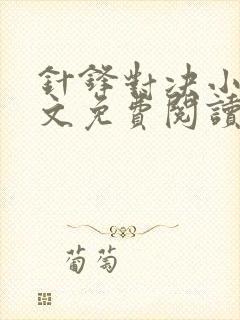 針鋒對決小
文免費閱讀
葡萄